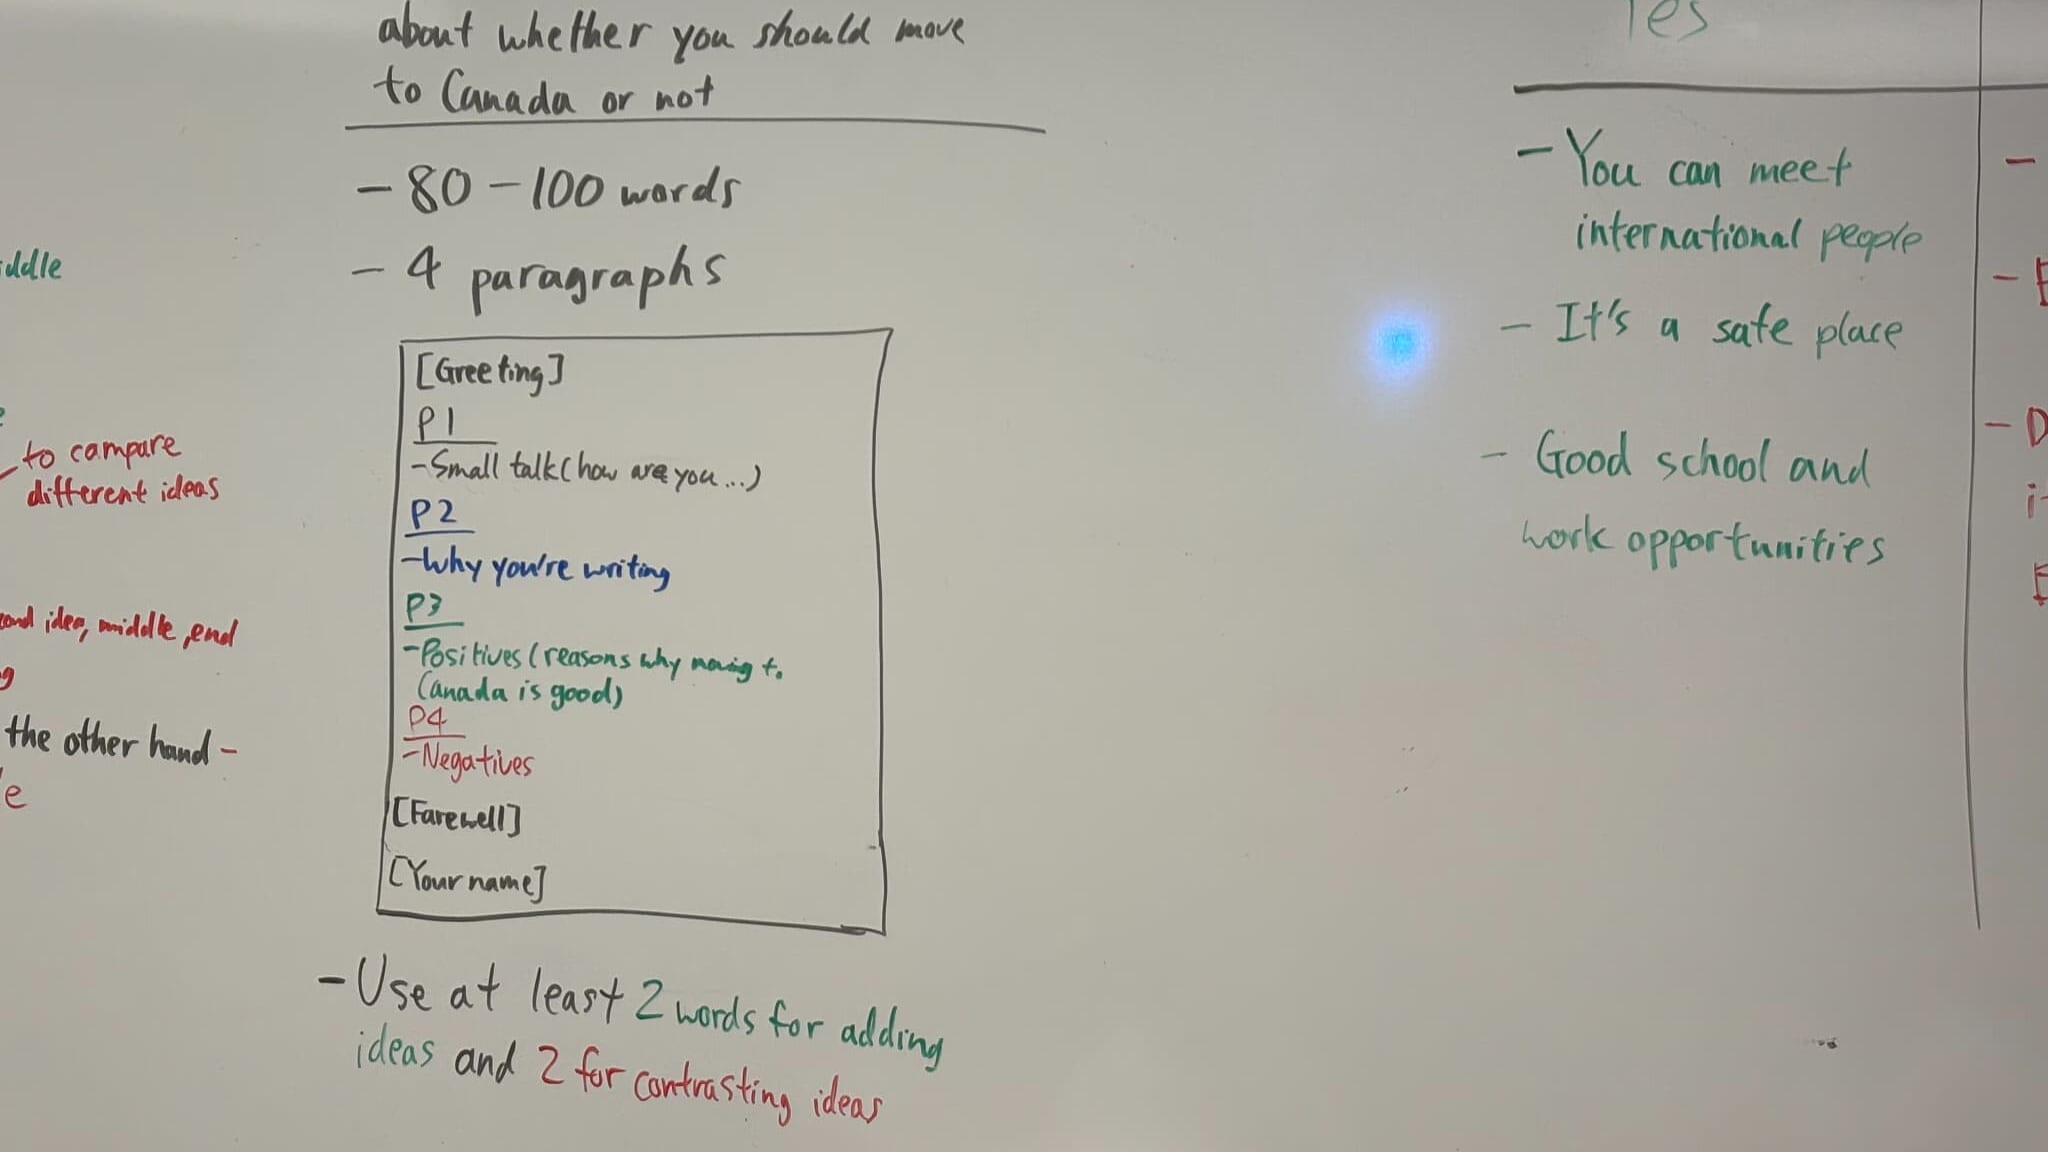 about whether you should move
to Canada or not
- 80 - 100 words
- 4 paragraphs
[Greeting]
P1
- Small talk (how are you...)
P2
- Why you're writing
P3
- Positives (reasons why moving to
Canada is good)
P4
- Negatives
[Farewell]
[Your name]
- Use at least 2 words for adding
ideas and 2 for contrasting ideas
to compare
different ideas
idea, middle, end
the other hand -
Yes
- You can meet
international people
- It's a safe place
- Good school and
work opportunities